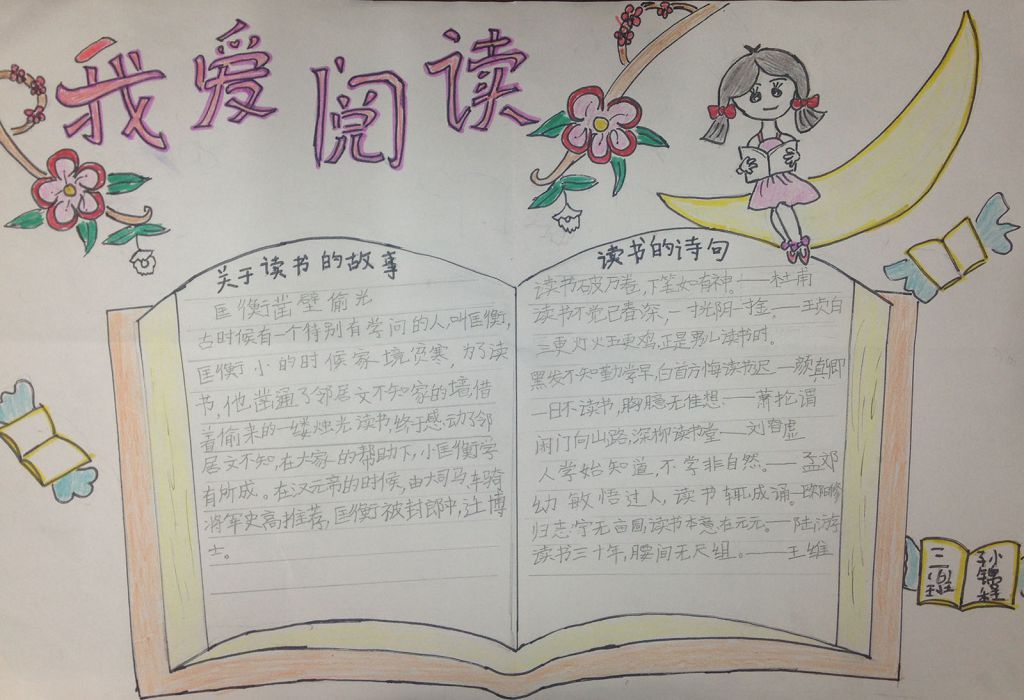 我爱阅读
关于读书的故事
匡衡凿壁偷光
古时候有一个特别有学问的人,叫匡衡,
匡衡小的时候家境贫寒,为了读
书,他凿通了邻居文不知家的墙,借
着偷来的一缕烛光读书,终于感动了邻
居文不知,在大家的帮助下,小匡衡学
有所成。在汉元帝的时候,由大司马、车骑
将军史高推荐,匡衡被封郎中,迁博
士。
读书的诗句
读书破万卷,下笔如有神。——杜甫
读书不觉已春深,一寸光阴一寸金,——王贞白
三更灯火五更鸡,正是男儿读书时。
黑发不知勤学早,白首方悔读书迟——颜真卿
一日不读书,胸臆无佳想。——萧抡谓
闲门向山路,深柳读书堂——刘昚虚
人学始知道,不学非自然。——孟郊
幼敏悟过人,读书辄成诵—欧阳修
归志宁无亩园,读书本意在元元。——陆游
读书三十年,腰间无尺组。——王维
三(6)班
孙锦程